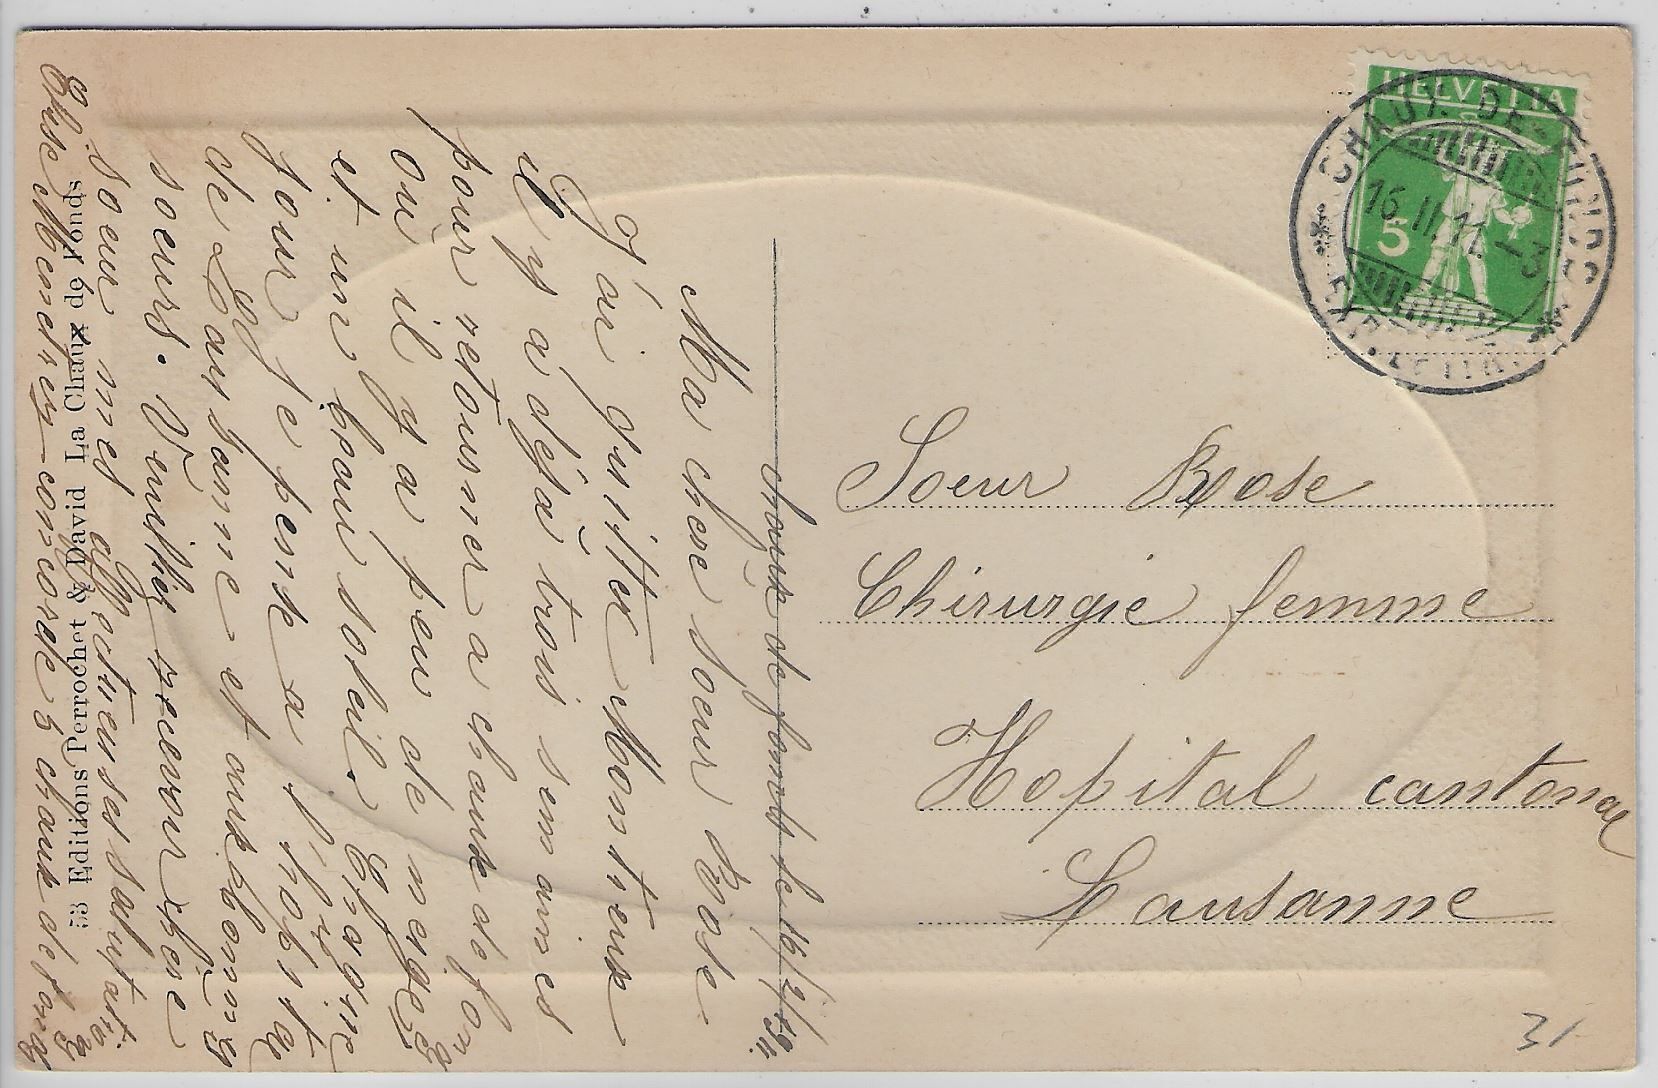 chaux de fonds le 16/2/1911.
Ma chère soeur Rose
J'ai quitter Monstreux
il y a déja trois semaines
pour retourner a chaux de fong
où il y a peu de neige
et un beau soleil. Chaque
jour je pense a l'hopital
de Lausanne et aux bonnes
soeurs. Veuillez recevoir chère
soeur mes affectueuses salutations
Elise concorde 5 chaux de fonds
53 Editions Perrochet & David La Chaux de Fonds
HELVETIA
5
CHAUX-DE-FONDS
16.II.11.-3
EXP. LETTR.
Soeur Rose
Chirurgie femme
Hopital cantonal
Lausanne
31